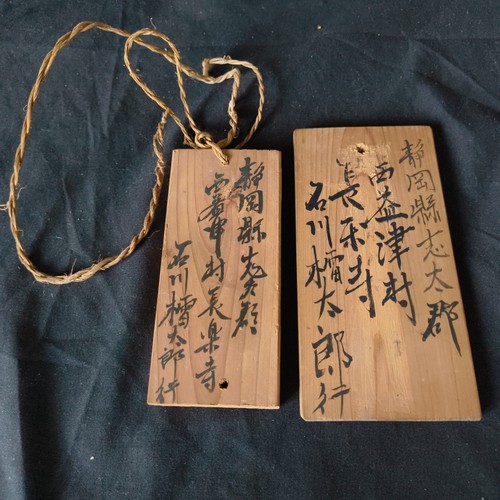 静岡縣志太郡
西益津村長楽寺
石川太郎行
静岡縣志太郡
西益津村
長楽寺
石川太郎行